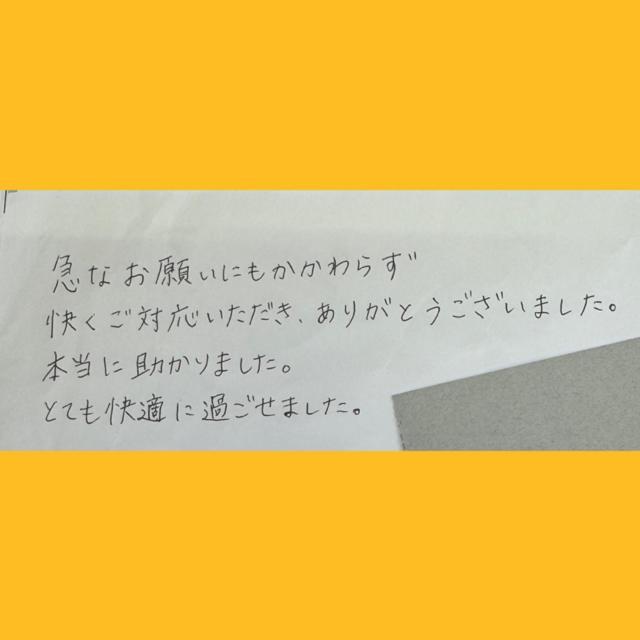 急なお願いにもかかわらず
快くご対応いただき、ありがとうございました。
本当に助かりました。
とても快適に過ごせました。